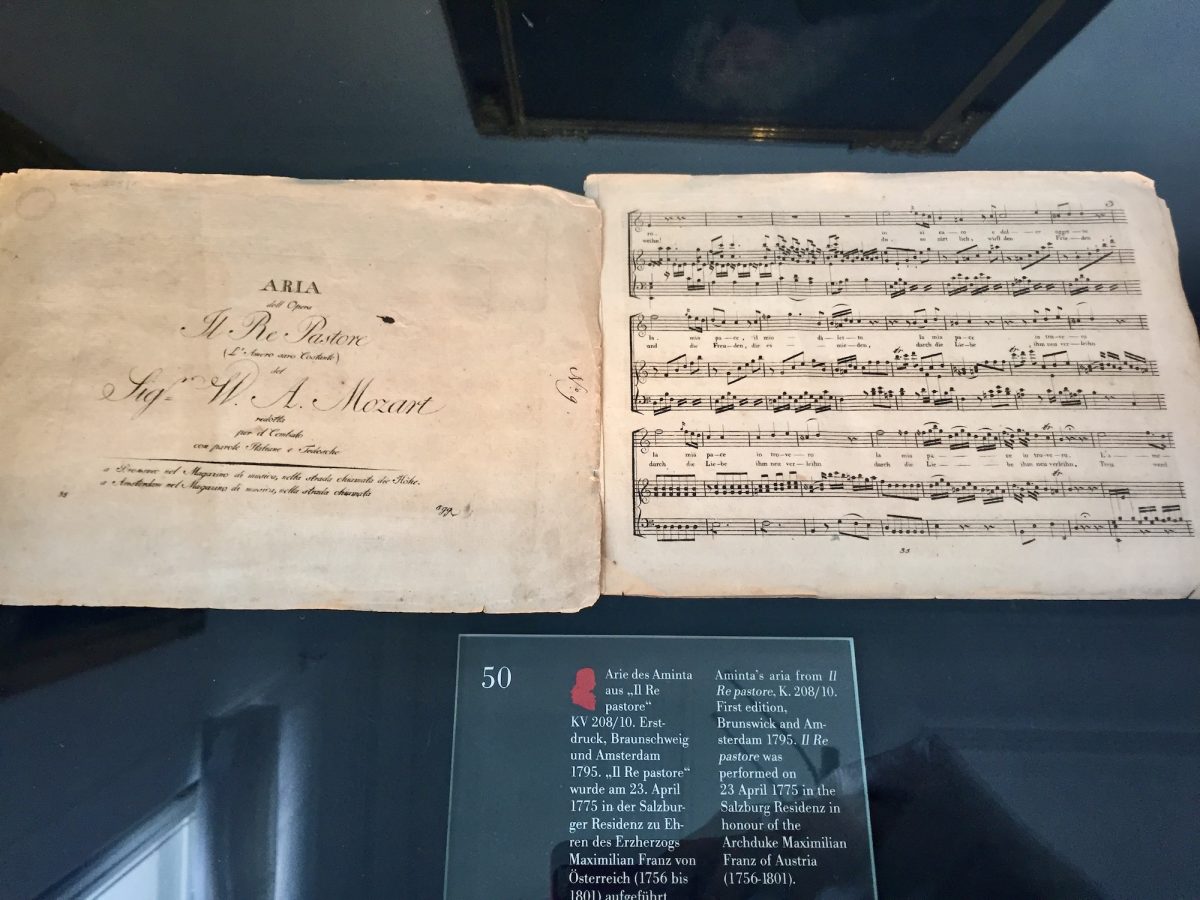 ARIA
dell Opera
Il Re Pastore
(L'Amero saro Costante)
del
Sig.re W. A. Mozart
redotta
per il Cembalo
con parole Italiane e Tedesche
a Bronsvic nel Magazino di musica, nella strada chiamata die Höhe.
a Amsterdam nel Magazino di musica, nella strada chiamata
38
No 9.
3
ro.
weihn!
la mia pa—ce, il mio di—let—to.
la mia pa—ce in tro—ve—ro
und die Freu—den, die es mie—den,
durch die Lie—be ihm neu verleihn
la mia pa—ce in tro—ve—ro
la mia pa—ce in tro—ve—ro.
durch die Lie—be ihm neu ver—leihn
durch die Lie—be ihm neu verleihn,
35
50
Arie des Aminta
aus „Il Re
pastore“
KV 208/10. Erst-
druck, Braunschweig
und Amsterdam
1795. „Il Re pastore“
wurde am 23. April
1775 in der Salzbur-
ger Residenz zu Eh-
ren des Erzherzogs
Maximilian Franz von
Österreich (1756 bis
1801) aufgeführt
Aminta's aria from Il
Re pastore, K. 208/10.
First edition,
Brunswick and Am-
sterdam 1795. Il Re
pastore was
performed on
23 April 1775 in the
Salzburg Residenz in
honour of the
Archduke Maximilian
Franz of Austria
(1756-1801).